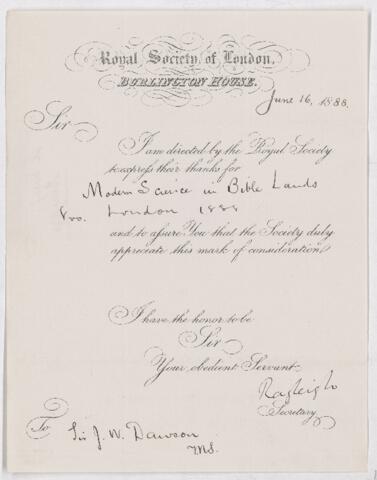 Royal Society of London.
BURLINGTON HOUSE.
June 16, 1888.
Sir
I am directed by the Royal Society
to express their thanks for
Modern Science in Bible Lands
8vo. London 1888
and to assure You that the Society duly
appreciate this mark of consideration
I have the honor to be
Sir
Your obedient Servant
Rayleigh
Secretary
To Sir J. W. Dawson